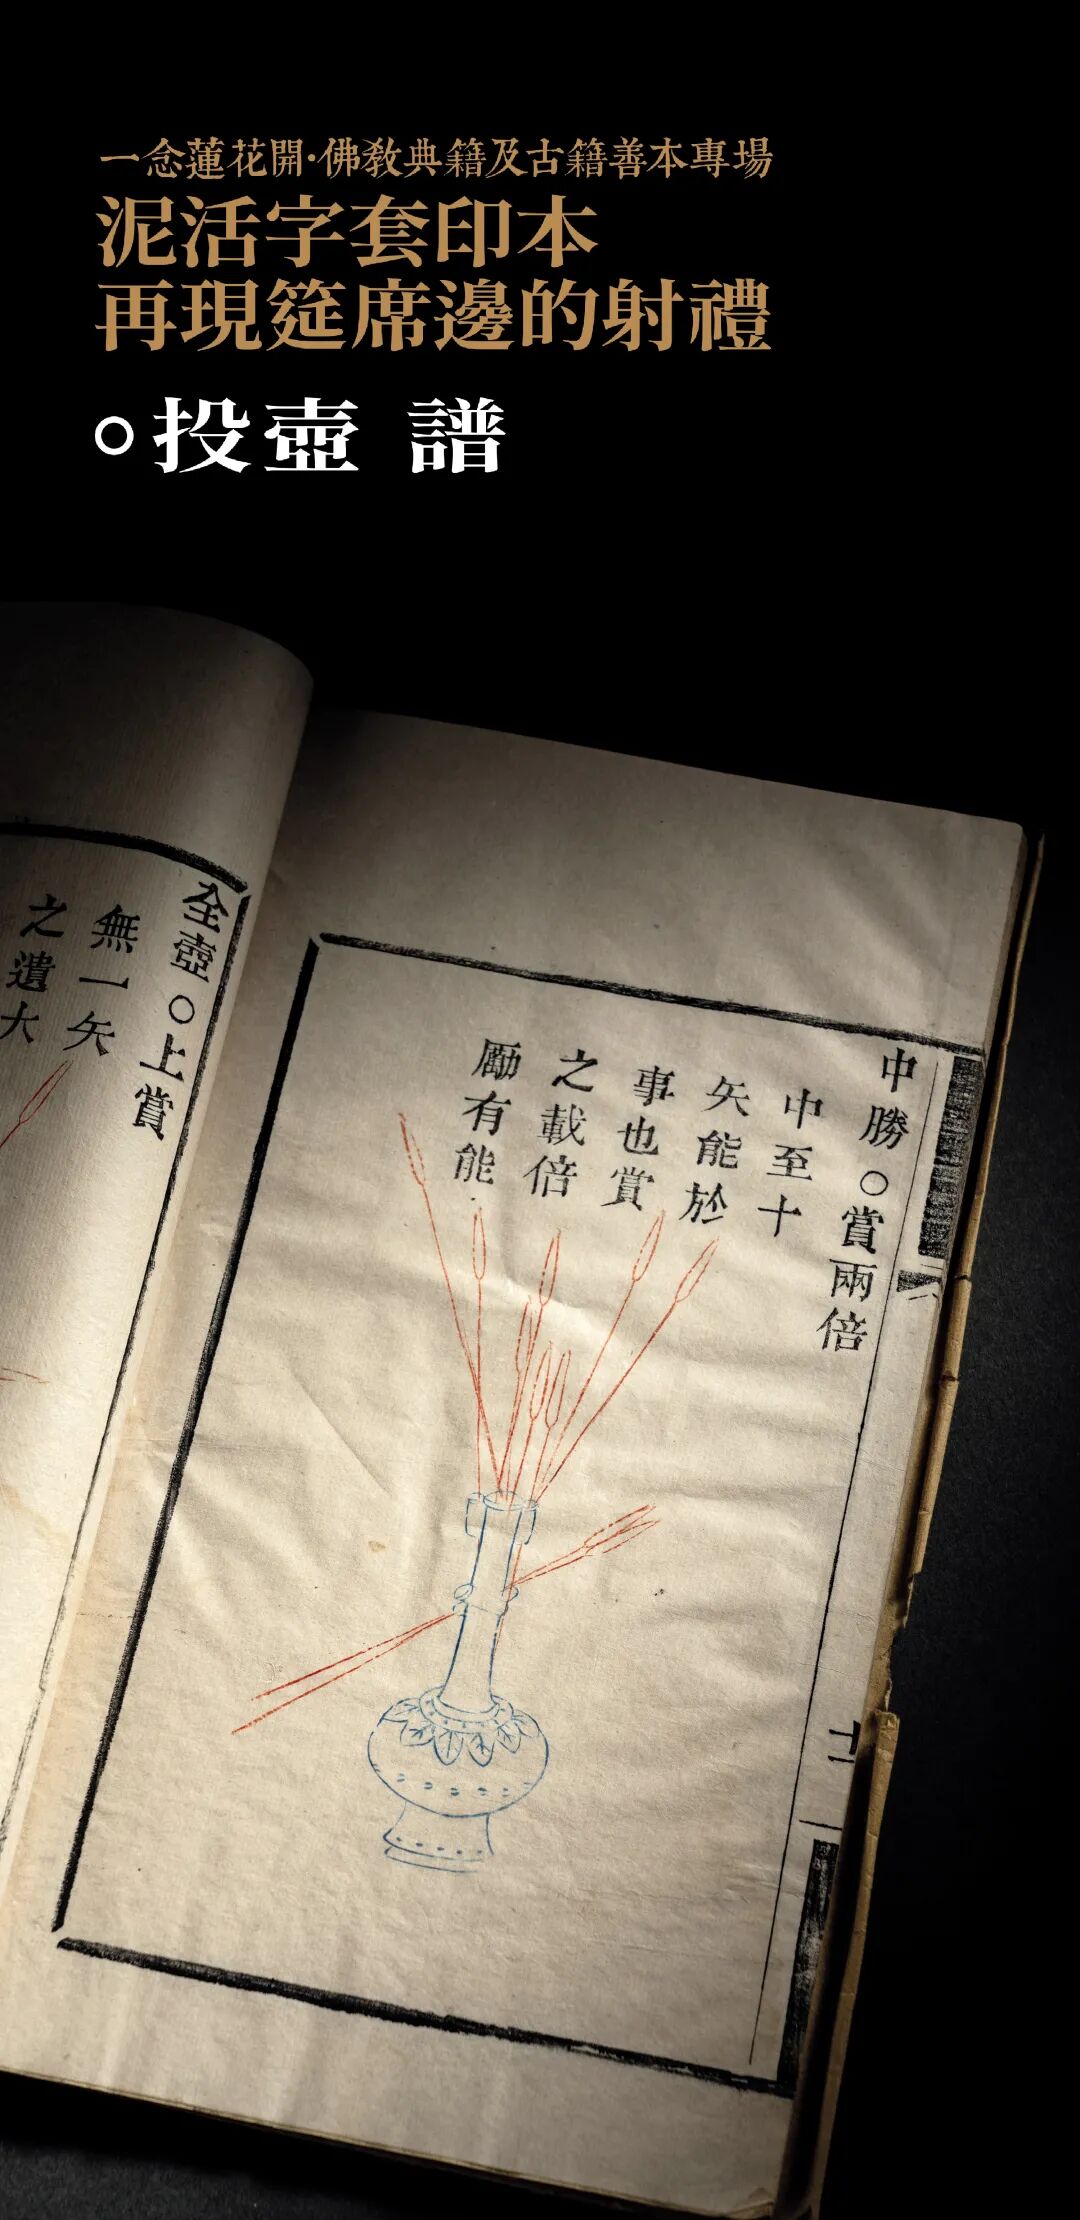 一念蓮花開·佛教典籍及古籍善本專場
泥活字套印本
再現筵席邊的射禮
○投壺 譜
中勝○賞兩倍
中至十
矢能於
事也賞
之載倍
勵有能
十一
全壺○上賞
無一矢
之遺大